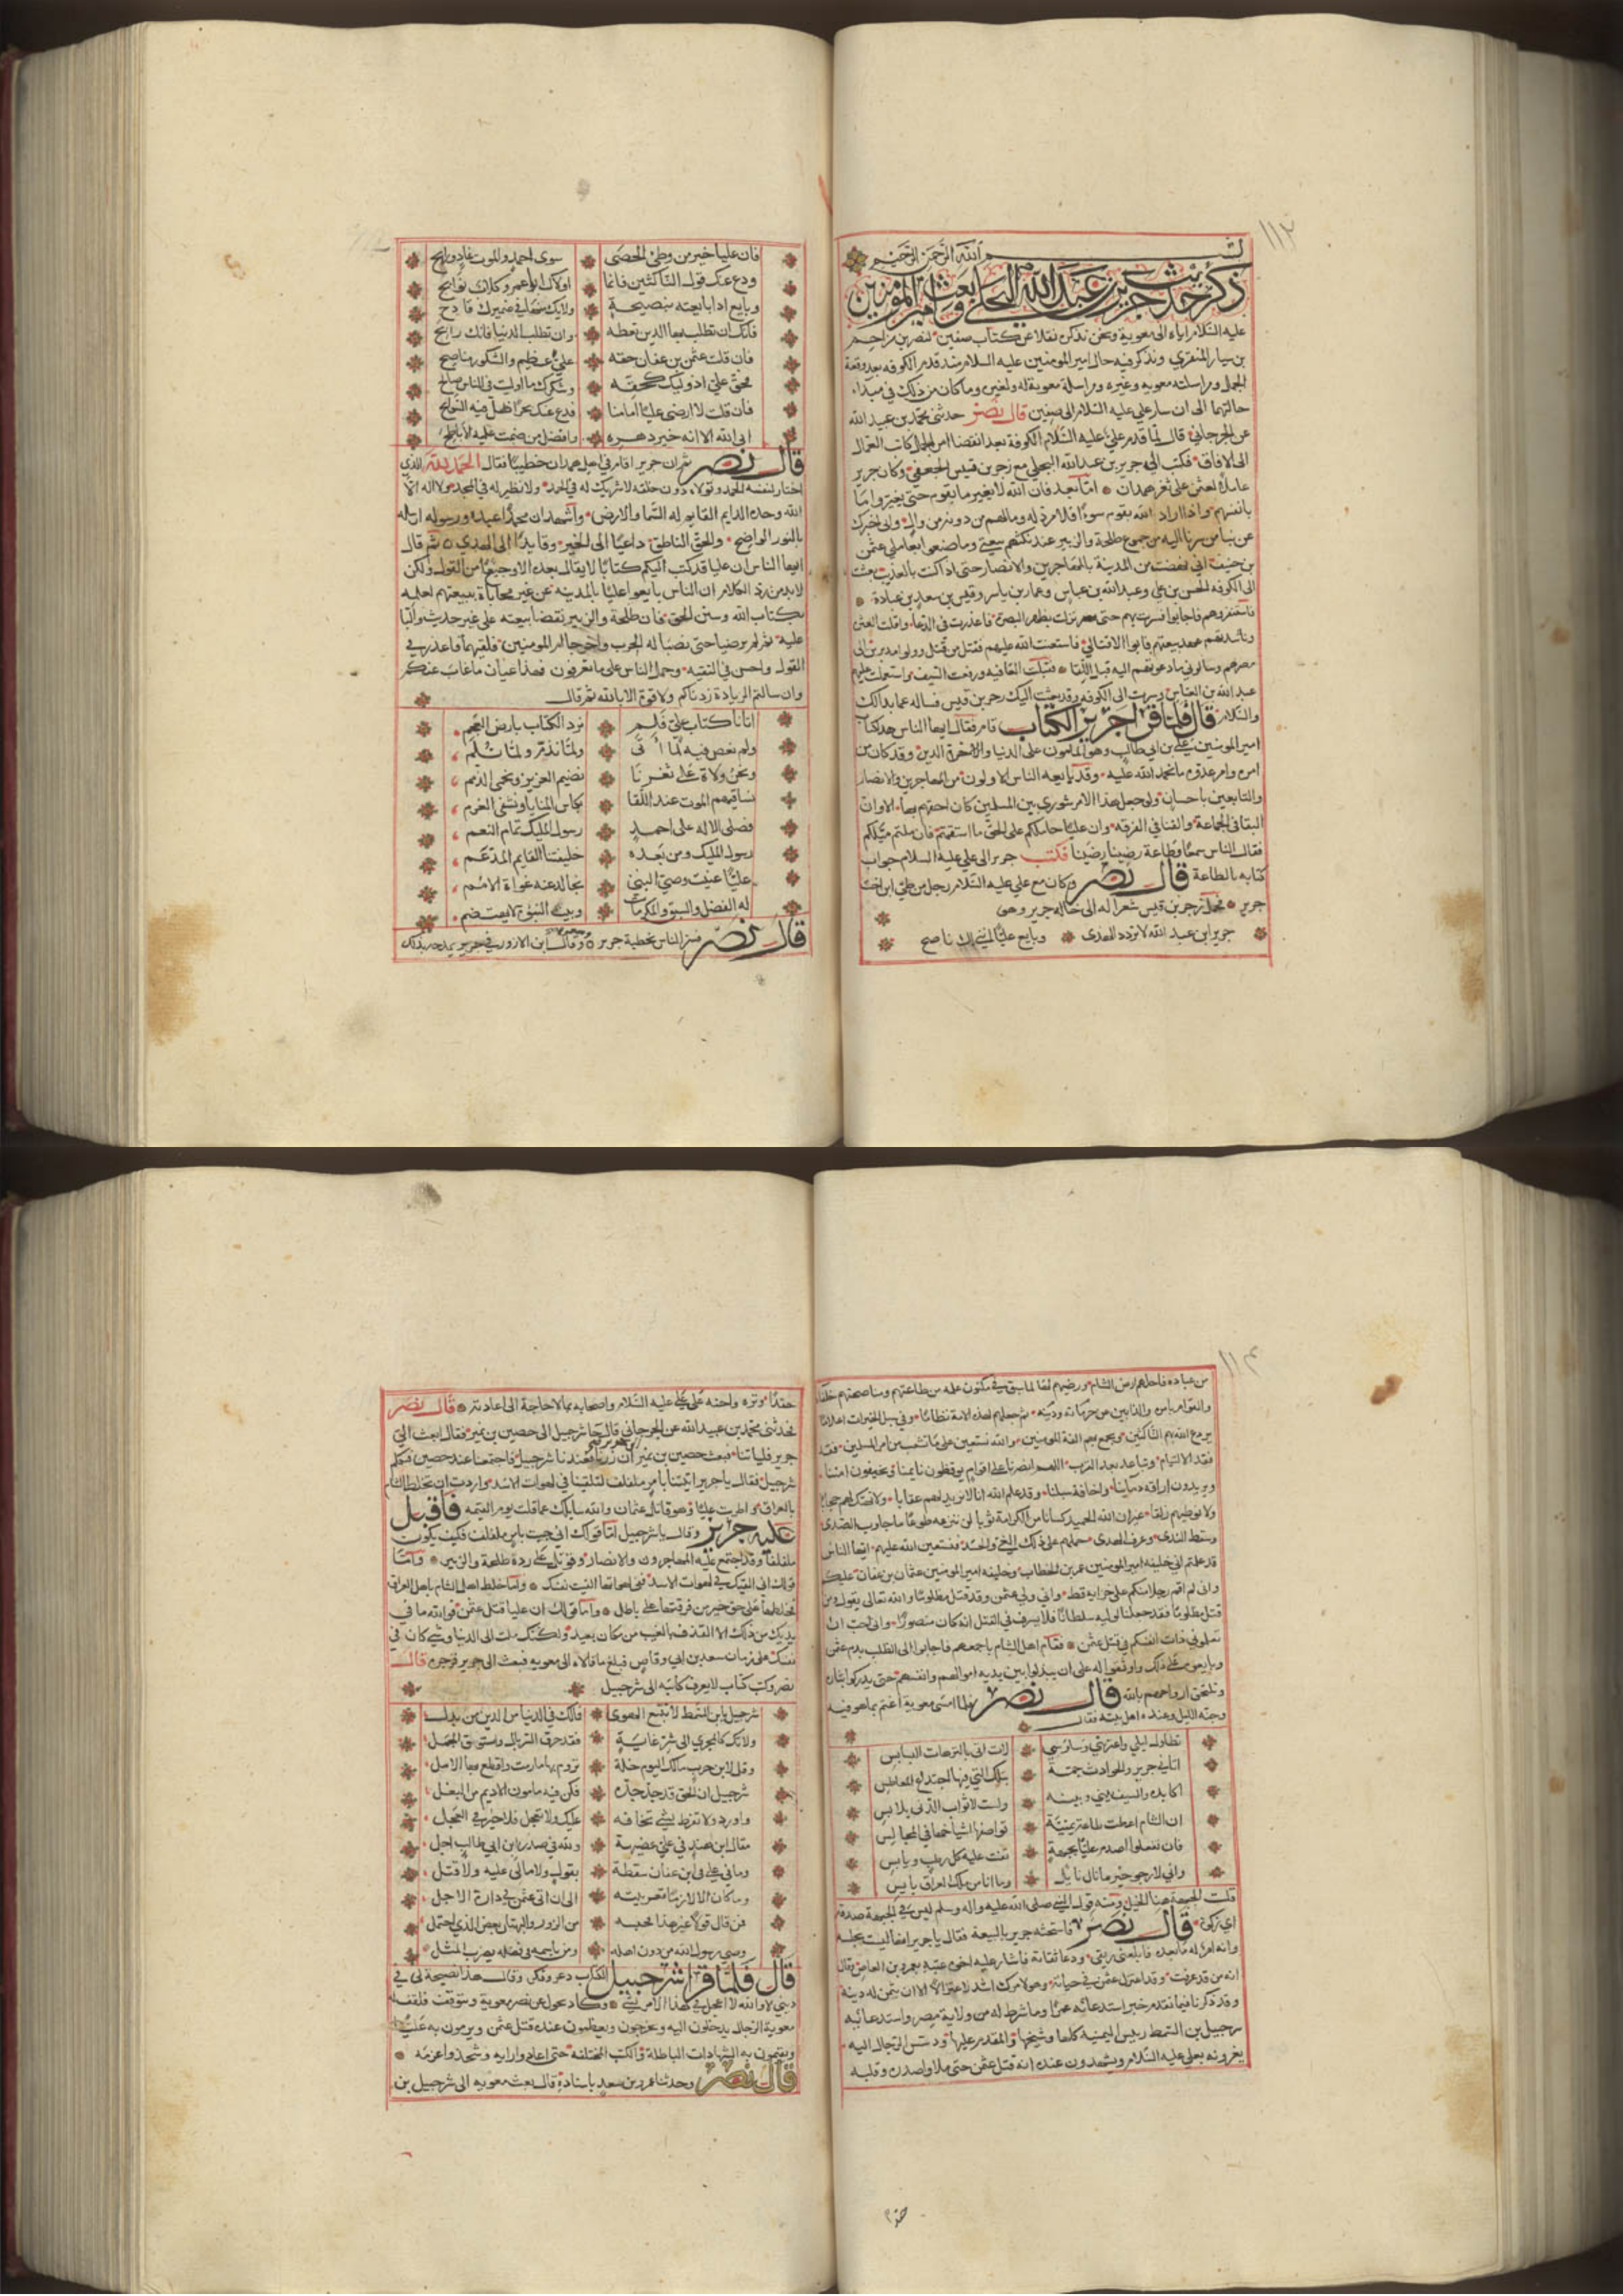 ١١٢
بسم الله الرحمن الرحيم
ذكر حديث جرير بن عبد الله البجلي وبعث امير المومنين
عليه السلام اياه الى معوية ونحن نذكر نقلا عن كتاب صفين لنصر بن مزاحم
بن سيار المنقري ونذكر فيه حال امير المومنين عليه السلام منذ قدم الكوفه بعد وقعة
الجمل ومراسلته معويه وغيره ومراسلة معوية له ولغيره وما كان من ذلك في مبداء
حالتهما الى ان سار علي عليه السلام الى صفين قال نصر حدثني محمد بن عبيد الله
عن الجرجاني قال لما قدم علي عليه السلام الكوفة بعد انقضا امر الجمل كاتب العمال
الى الافاق فكتب الى جرير بن عبد الله البجلي مع زحر بن قيس الجعفي وكان جرير
عاملا لعثمن على ثغر همدان اما بعد فان الله لا يغير ما بقوم حتى يغيروا ما
بانفسهم واذا اراد الله بقوم سوءا فلا مرد له وما لهم من دونه من وال واني اخبرك
عن نبا من سرنا اليه من جموع طلحة والزبير عند نكثهم بيعتي وما صنعوا بعاملي عثمن
بن حنيف اني نهضت من المدينة بالمهاجرين والانصار حتى اذا كنت بالعذيب بعثت
الى الكوفه الحسن بن علي وعبد الله بن عباس وعمار بن ياسر وقيس بن سعد بن عبادة
فاستنفروهم فاجابوا فسرت بهم حتى نزلت بظهر البصرة فاعذرت في الدعا واقلت العثرة
وناشدتهم عهد بيعتهم فابوا الا قتالي فاستعنت الله عليهم فقتل من قتل وولوا مدبرين الى
مصرهم وسالوني ما دعوتهم اليه قبل اللقا فقبلت العافيه ورفعت السيف واستعملت عليهم
عبد الله بن العباس وسرت الى الكوفه وقد بعثت اليك زحر بن قيس فساله عما بدا لك
والسلام قال فلما قرا جرير الكتاب قام فقال ايها الناس هذا كتاب
امير المومنين علي بن ابي طالب وهو المامون على الدنيا والاخرة الدين وقد كان من
امره وامر عدوه ما نحمد الله عليه وقد بايعه الناس الاولون من المهاجرين والانصار
والتابعين باحسان ولو جعل هذا الامر شورى بين المسلمين كان احقهم بها الا وان
البقا في الجماعة والفنا في الفرقه وان عليا حاملكم على الحق ما استقمتم فان ملتم ميلكم
فقال الناس سمعا وطاعة رضينا رضينا فكتب جرير الى علي عليه السلام جواب
كتابه بالطاعة قال نصر وكان مع علي عليه السلام رجل من طي ابن اخت
جرير فحمل زحر بن قيس شعرا له الى خاله جرير وهو
جرير ابن عبد الله لا تردد الهدى وبايع عليا انني لك ناصح
فان عليا خير من وطئ الحصى سوى احمد والموت غاد ورايح
ودع عنك قول الناكثين فانما اولاك ابا عمرو كلاب نوابح
وبايع اذا بايعته بنصيحة ولا يك منها في ضميرك قادح
فانك ان تطلب بها الدين تعطه وان تطلب الدنيا فانك رابح
فان قلت عثمن بن عفان حقه علي عظيم والشكور مناصح
فحق علي اذ وليك كحقه وشكرك ما اوليت في الناس صالح
فان قلت لا ارضى عليا امامنا فدع عنك بحرا ضل فيه السوابح
ابى الله الا انه خير دهره وافضل من ضمت عليه الاباطح
قال نصر ثم ان جرير اقام في اهل همدان خطيبا فقال الحمد لله الذي
اختار لنفسه الحمد وتولاه دون خلقه لا شريك له في الحمد ولا نظير له في المجد ولا اله الا
الله وحده الدايم القايم اله السما والارض واشهد ان محمدا عبده ورسوله ارسله
بالنور الواضح والحق الناطق داعيا الى الخير وقايدا الى الهدى ثم قال
ايها الناس ان عليا قد كتب اليكم كتابا لا يقال بعده الا رجيعا من القول ولكن
لا بد من رد الكلام ان الناس بايعوا عليا بالمدينه عن غير محاباة ببيعتهم لعلمه
بكتاب الله وسنن الحق فان طلحة والزبير نقضا بيعته على غير حدث والبا
عليه ثم لم يرضيا حتى نصبا له الحرب واخرجا ام المومنين فلقيهما فاعذر في
القول واحسن في البقيه وحمل الناس على ما تعرفون فهذا عيان ما غاب عنكم
وان سالتم الزيادة زدناكم ولا قوة الا بالله ثم قال
اتانا كتاب علي فلم نرد الكتاب بارض العجم
ولم نعص فيه لما اتى ولما نذم ولما نلم
ونحن ولاة على ثغرنا نضيم العزيز ونحمي الذمم
نساقيهم الموت عند اللقا بكاس المنايا ونشفي القرم
فصلى الاله على احمد رسول المليك تمام النعم
رسول المليك ومن بعده خليفتنا القايم المدعم
عليا عنيت وصي النبي نجالد عنه غواة الامم
له الفضل والسبق والمكرمات وبيت النبوة لا يهتضم
قال نصر فسر الناس بخطبة جرير وقال ابن الازور في جرير يمدحه بذلك
١١٤
من عباده فاحلهم ارض الشام ورضيهم لها لما سبق في مكنون علمه من طاعتهم ومناصحتهم خلفاه
والقوام بامره والذابين عن حرماته ودينه ثم جعلهم لهذه الامة نظاما وفي سبل الخيرات اعلاما
يردع الله بهم الناكثين ويجمع بهم الفة المومنين والله نستعين على ما تشعب من امر المسلمين
بعد الالتيام وتباعد بعد القرب اللهم انصرنا على اقوام يوقظون نايمنا ويخيفون امننا
ويريدون اراقة دماينا واخافة سبلنا وقد علم الله انا لا نريد لهم عقابا ولا نهتك لهم حجابا
ولا نوطيهم زلقا غير ان الله الحميد كسانا من الكرامة ثوبا لن ننزعه طوعا ما جاوب الصدى
وسقط الندى وعرف الهدى حملهم على ذلك البغي والحسد فنستعين الله عليهم ايها الناس
قد علمتم اني خليفه امير المومنين عمر بن الخطاب وخليفه امير المومنين عثمان بن عفان عليكم
واني لم اقم رجلا منكم على خزايه قط واني ولي عثمن وقد قتل مظلوما والله تعالى يقول ومن
قتل مظلوما فقد جعلنا لوليه سلطانا فلا يسرف في القتل انه كان منصورا وانا احب ان
تعلموني ذات انفسكم في قتل عثمن فقام اهل الشام باجمعهم فاجابوا الى الطلب بدم عثمن
وبايعوه على ذلك واوثقوا له على ان يبذلوا بين يديه اموالهم وانفسهم حتى يدركوا بثاره
وتلتحق ارواحهم بالله قال نصر فلما امسى معوية اغتم بما هو فيه
وجنه الليل وعنده اهل بيته فقال
تطاول ليلي واعترتني وساوسي لات اتى بالترهات البسابس
اتانا جرير والحوادث جمة بتلك التي فيها اجتداع المعاطس
اكايده والسيف بيني وبينه ولست لاثواب الدني بلابس
ان الشام اعطت طاعة يمنية تواصفها اشياخها في المجالس
فان يفعلوا اصدم عليا بجبهة تفت عليه كل رطب ويابس
واني لارجو خير ما نال نايل وما انا من ملك العراق بايس
قلت الجبهة هنا الخيل ومنه قول النبي صلى الله عليه واله وسلم ليس في الجبهة صدقة
اي زكوة قال نصر فاستحثه جرير بالبيعة فقال يا جرير انها ليست بخلسة
وانه امر له ما بعده فابلعني ريقي ودعا ثقاته فاشار عليه اخوه عتبه بعمرو بن العاص وقال
انه من قد عرفت وقد اعتزل عثمن في حياته وهو لامرك اشد اعتزالا الا ان يثمن له دينه
وقد ذكرنا فيما تقدم خبر استدعائه عمرا وما شرط له من ولاية مصر واستدعائه
شرحبيل بن السمط رييس اليمنيه كلها وشيخها والمقدم عليها ودسس الرجال اليه
يغرونه بعلي عليه السلام ويشهدون عنده انه قتل عثمن حتى ملاوا صدره وقلبه
حقدا
حقدا وتره واحنه على علي عليه السلام واصحابه بما لا حاجة الى اعادته قال نصر
فحدثني محمد بن عبيد الله عن الجرجاني قال جا شرحبيل الى حصين بن نمير فقال ابعث الى
جرير فلياتنا فبعث حصين بن نمير ان زرنا فعندنا شرحبيل فاجتمعنا عند حصين فتكلم
شرحبيل فقال يا جرير اتيتنا بامر ملفف لتلقينا في لهوات الاسد واردت ان تخلط الشام
بالعراق واطريت عليا وهو قاتل عثمان والله سايلك عما قلت يوم القيمه فاقبل
عليه جرير وقال يا شرحبيل اما قولك اني جيت بامر ملفف فكيف يكون
ملففا وقد اجتمع عليه المهاجرون والانصار وقوتل على رده طلحة والزبير واما
قولك اني القيك في لهوات الاسد ففي لهواتها القيت نفسك واما خلط اهل الشام باهل العراق
فخلطهما على حق خير من فرقتهما على باطل واما قولك ان عليا قتل عثمن فوالله ما في
يديك من ذلك الا القذف بالغيب من مكان بعيد ولكنك ملت الى الدنيا وشي كان في
نفسك على زمان سعد بن ابي وقاص فبلغ ما قالاه الى معويه فبعث الى جرير فزجره قال
نصر وكتب كتاب لا يعرف كاتبه الى شرحبيل
شرحبيل يا بن السمط لا تتبع الهوى فما لك في الدنيا من الدين من بدل
ولا تك كالمجري الى شر غاية فقد خرق السربال واستنوق الجمل
وقل لابن حرب ما لك اليوم خلة تروم بها ما رمت واقطع له الامل
شرحبيل ان الحق قد جد جده فكن فيه مامون الاديم من النغل
وارود ولا تفرط بشي تخافه عليك ولا تعجل فلا خير في العجل
مقال ابن هند في علي عضيهة ولله في صدر ابن ابي طالب اجل
وما في علي في ابن عفان سقطة بقول ولا مالى عليه ولا قتل
وما كان الا لازما قعر بيته الى ان اتى عثمن في داره الاجل
فمن قال قولا غير هذا فحسبه من الزور والبهتان بعض الذي احتمل
وصي رسول الله من دون اهله ومن باسمه في فضله يضرب المثل
قال فلما قرا شرحبيل الكتاب ذعر وفكر وقال هذا نصيحة لي في
ديني لا والله لا اعجل في هذا الامر بشي وكاد يحول عن نصر معوية ويتوقف فلفف له
معوية الرجال يدخلون اليه ويخرجون ويعظمون عنده قتل عثمن ويرمون به عليا
ويقيمون به الشهادات الباطلة والكتب المختلفه حتى اعادوا رايه وشحذوا عزمه
قال نصر وحدثنا عمر بن سعد باسناده قال بعث معويه الى شرحبيل بن